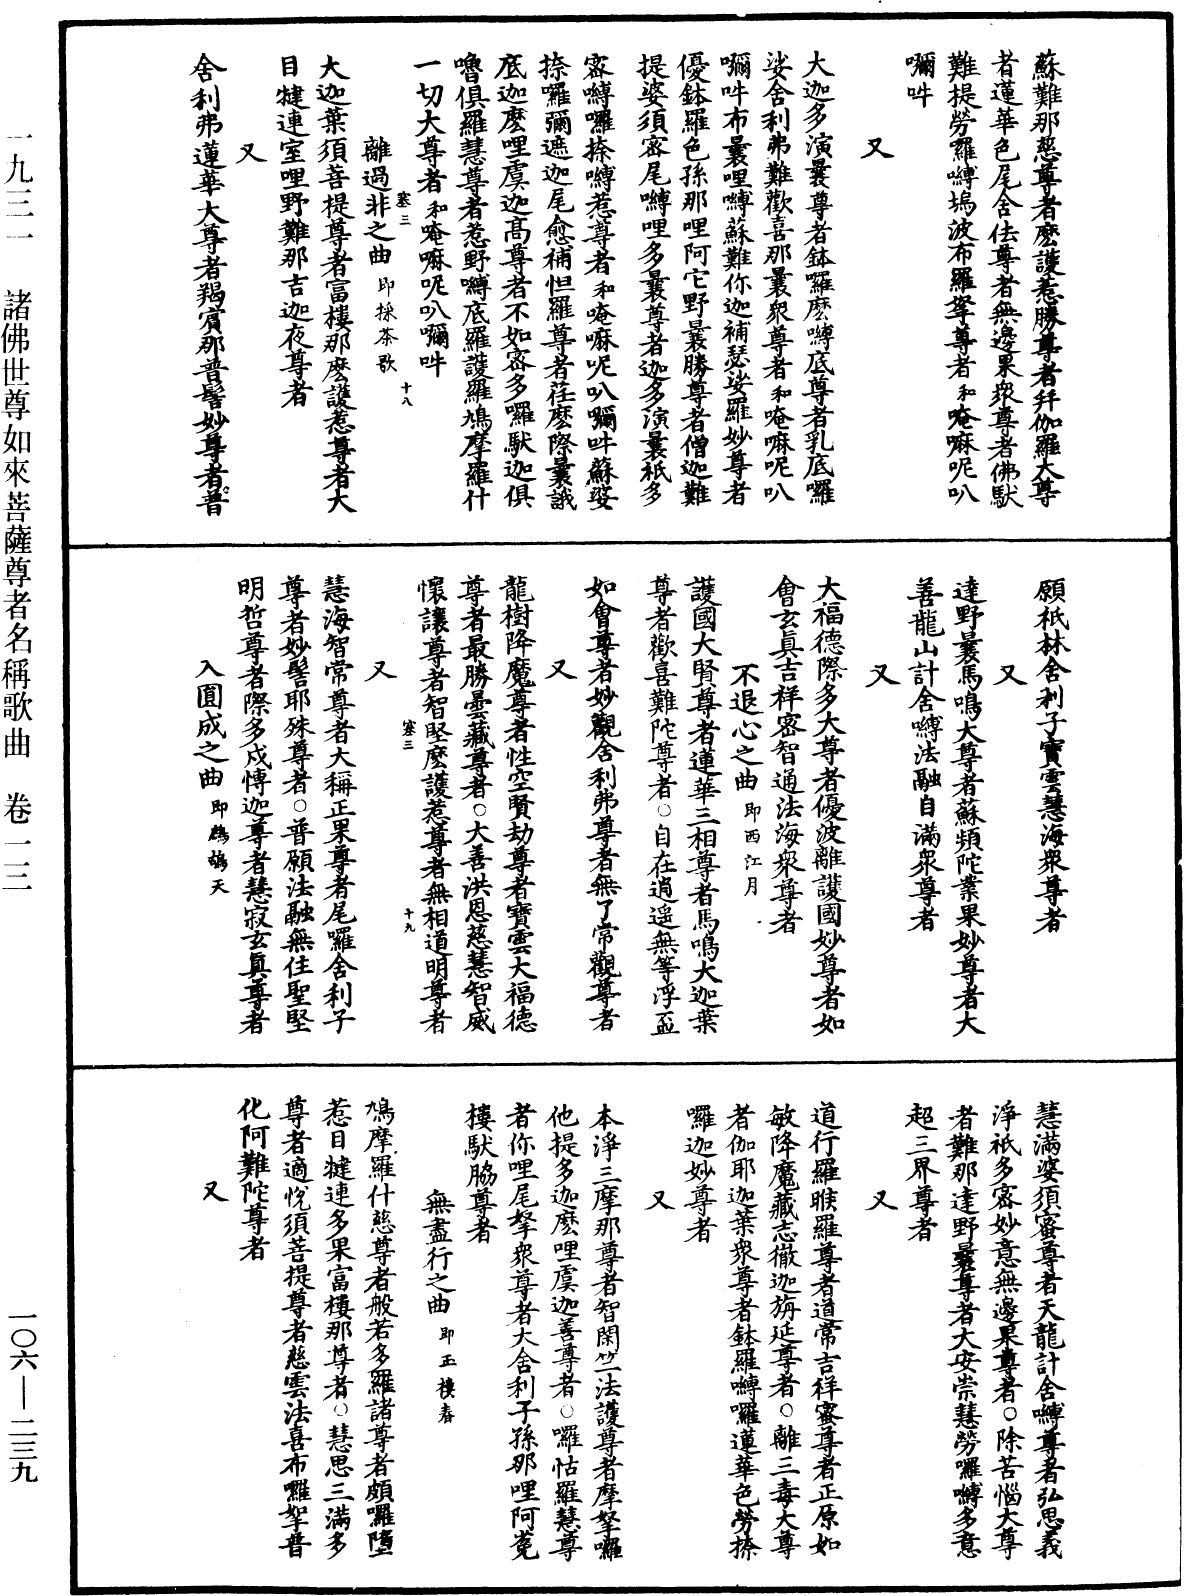 蘇難那慈尊者麽護惹勝尊者幷伽羅大尊
者蓮華色尾舍佉尊者無邊果衆尊者佛馱
難提勞羅嚩塢波布羅拏尊者和唵嘛呢叭
囕吽
又
大迦多演曩尊者鉢囉麽嚩底尊者乳底囉
娑舍利弗難歡喜那曩衆尊者和唵嘛呢叭
囕吽布曩哩嚩蘇難你迦補瑟娑羅妙尊者
優鉢羅色孫那哩阿它野曩勝尊者僧迦難
提婆須密尾嚩哩多曩尊者迦多演曩祇多
密嚩囉捺嚩惹尊者和唵嘛呢叭囕吽蘇婆
捺囉彌遮迦尾愈補怛羅尊者荏麽際曩誐
底迦麽哩虞迦高尊者不如密多囉馱迦俱
嚕俱羅慧尊者惹野嚩底羅護羅鳩摩羅什
一切大尊者和唵嘛呢叭囕吽
離過非之曲 即採茶歌
塞三 十八
大迦葉須菩提尊者富樓那麽護惹尊者大
目犍連室哩野難那吉迦夜尊者
又
舍利弗蓮華大尊者羯賓那普髻妙尊者普
願祇林舍利子寶雲慧海衆尊者
又
達野曩馬鳴大尊者蘇頻陀業果妙尊者大
善龍山計舍嚩法融自滿衆尊者
又
大福德際多大尊者優波離護國妙尊者如
會玄真吉祥密智通法海衆尊者
不退心之曲 即西江月
護國大賢尊者蓮華三相尊者馬鳴大迦葉
尊者歡喜難陀尊者○自在逍遥無等浮盃
如會尊者妙觀舍利弗尊者無了常觀尊者
又
龍樹降魔尊者性空賢劫尊者寶雲大福德
尊者最勝曇藏尊者○大善洪恩慈慧智威
懷讓尊者智堅麽護惹尊者無相道明尊者
塞三 十九
又
慧海智常尊者大稱正果尊者尾羅舍利子
尊者妙髻耶殊尊者○普願法融無住聖堅
明哲尊者際多戍慱迦尊者慧寂玄真尊者
入圓成之曲 即鷓鴣天
慧滿婆須蜜尊者天龍計舍嚩尊者弘思義
淨祇多密妙意無邊果尊者○除苦惱大尊
者難那達野曩尊者大安崇慧勞囉嚩多意
超三界尊者
又
道行羅睺羅尊者道常吉祥蜜尊者正原如
敏降魔藏志徹迦旃延尊者○離三毒大尊
者伽耶迦葉衆尊者鉢羅嚩囉蓮華色勞捺
囉迦妙尊者
又
本淨三摩那尊者智閑竺法護尊者摩拏囉
他提多迦麽哩虞迦善尊者○囉怙羅慧尊
者你哩尾拏衆尊者大舍利子孫那哩阿㝹
樓馱脇尊者
無盡行之曲 即玉樓春
鳩摩羅什慈尊者般若多羅諸尊者頗囉墮
惹目犍連多果富樓那尊者○慧思三滿多
尊者適悅須菩提尊者慈雲法喜布囉拏普
化阿難陀尊者
又
一九三一 諸佛世尊如來菩薩尊者名稱歌曲 卷一三
一〇六—二三九